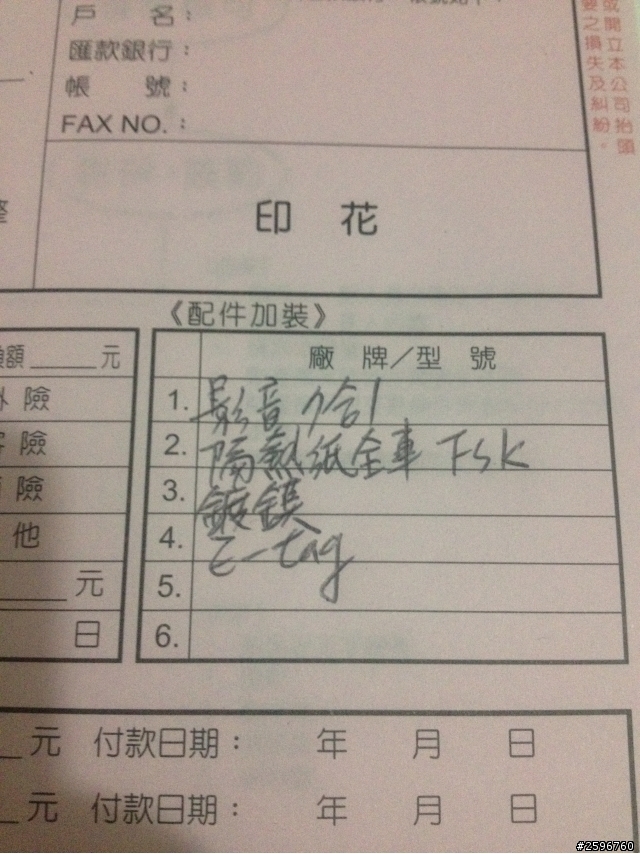 戶 名：
匯款銀行：
帳 號：
FAX NO.：
或開立本公司抬頭
要之損失及糾紛。
印 花
《配件加裝》
額_____元
險
險
險
他
_____元
日
廠 牌／型 號
1. 影音 7合1
2. 隔熱紙全車 FSK
3. 鍍鎂
4. E-tag
5.
6.
元 付款日期： 年 月 日
元 付款日期： 年 月 日
#2596760